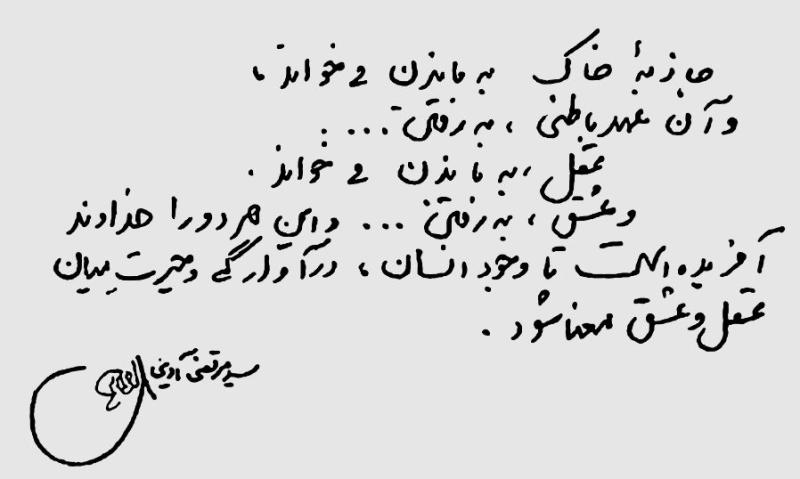 جاذبهٔ خاک به ماندن می‌خواند،
و آن عهد باطنی، به رفتن....
عقل، به ماندن می‌خواند.
و عشق، به رفتن... و این هر دو را خداوند
آفریده است تا وجود انسان، در آوارگی و حیرت میان
عقل و عشق معنا شود.
سید مرتضی آوینی